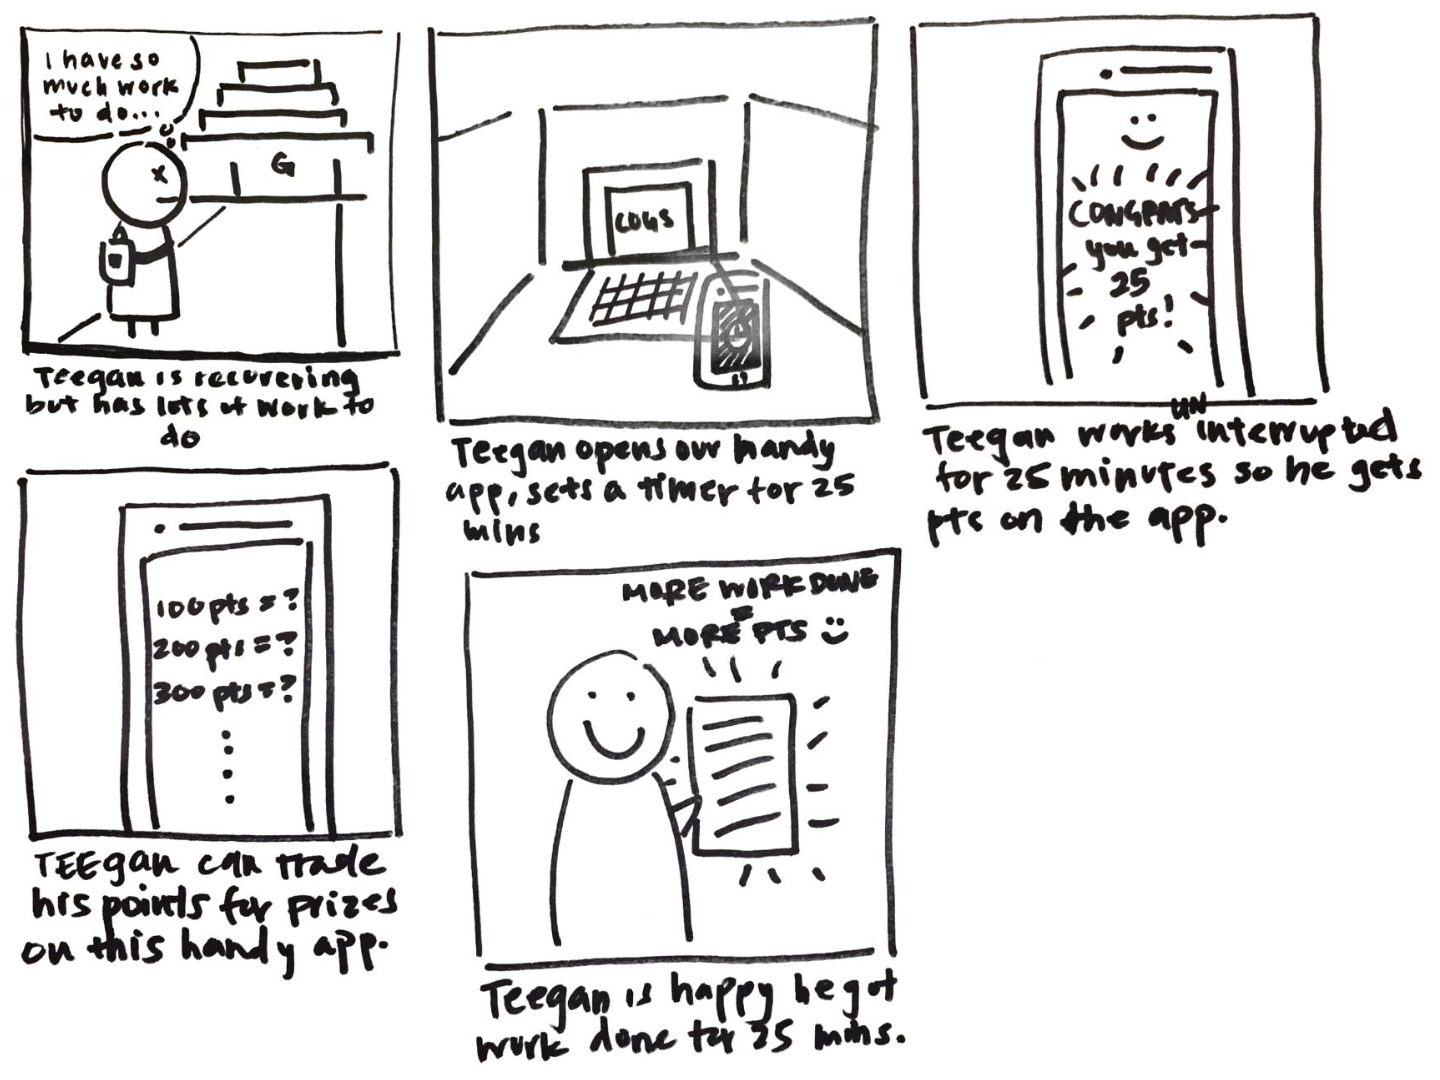 I have so
much work
to do...
G
Teegan is recovering
but has lots of work to
do
COGS
Teegan opens our handy
app, sets a timer for 25
mins
CONGRATS
you get
25
pts!
UN
Teegan works interrupted
for 25 minutes so he gets
pts on the app.
100 pts = ?
200 pts = ?
300 pts = ?
TEEgan can trade
his points for prizes
on this handy app.
MORE WORK DONE
=
MORE PTS
Teegan is happy he got
work done for 25 mins.